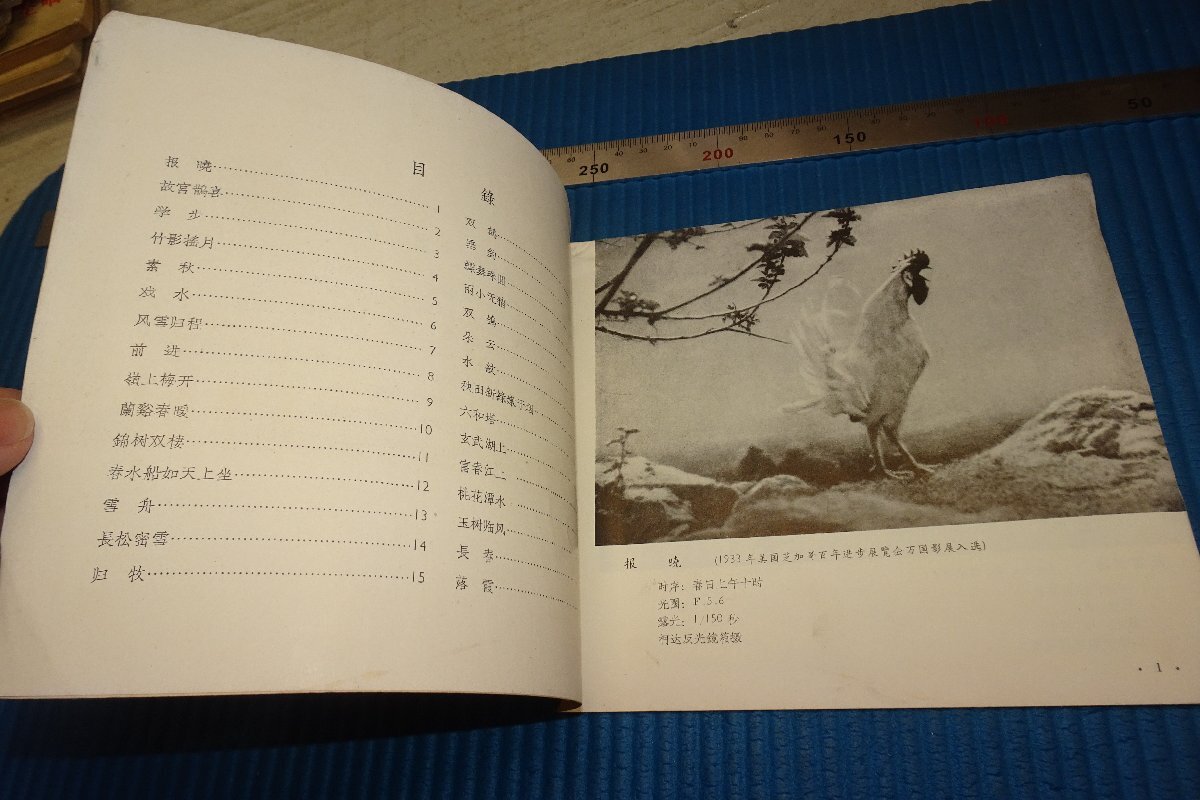 目 錄
报 曉 1
故宮鵲喜 2
学 步 3
竹影搖月 4
素 秋 5
戏 水 6
风雪归程 7
前 进 8
嶺上梅开 9
蘭谿春暖 10
錦树双棲 11
春水船如天上坐 12
雪 舟 13
長松密雪 14
归 牧 15
双
两小无猜
双
朵 云
水
六和塔
玄武湖上
富春江上
桃花潭水
玉树临风
長 春
落 霞
250
200
150
100
50
报 曉 (1933年美国芝加哥百年进步展覽会万国影展入选)
时序：春日上午十时
光圈：F.5.6
露光：1/150 秒
柯达反光鏡箱攝
·1·